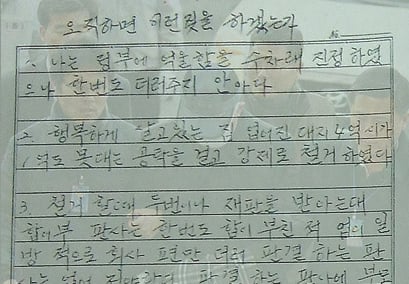 오직하면 이런짓을 하겠는가
1. 나는 정부에 억울함을 수차래 진정하였
으나 한번도 더러주지 안아다
2. 행복하게 살고있는 집 넘어진 대지 4억 시가
1억도 못대는 공탁을 걸고 강제로 철거하였다
3. 철거 할때 두번이나 재판을 받아는대
합이부 판사는 한번도 합이 부친 적 업이 일
방적으로 회사 편만 더러 판결 하는 판
판결 하는 판사에